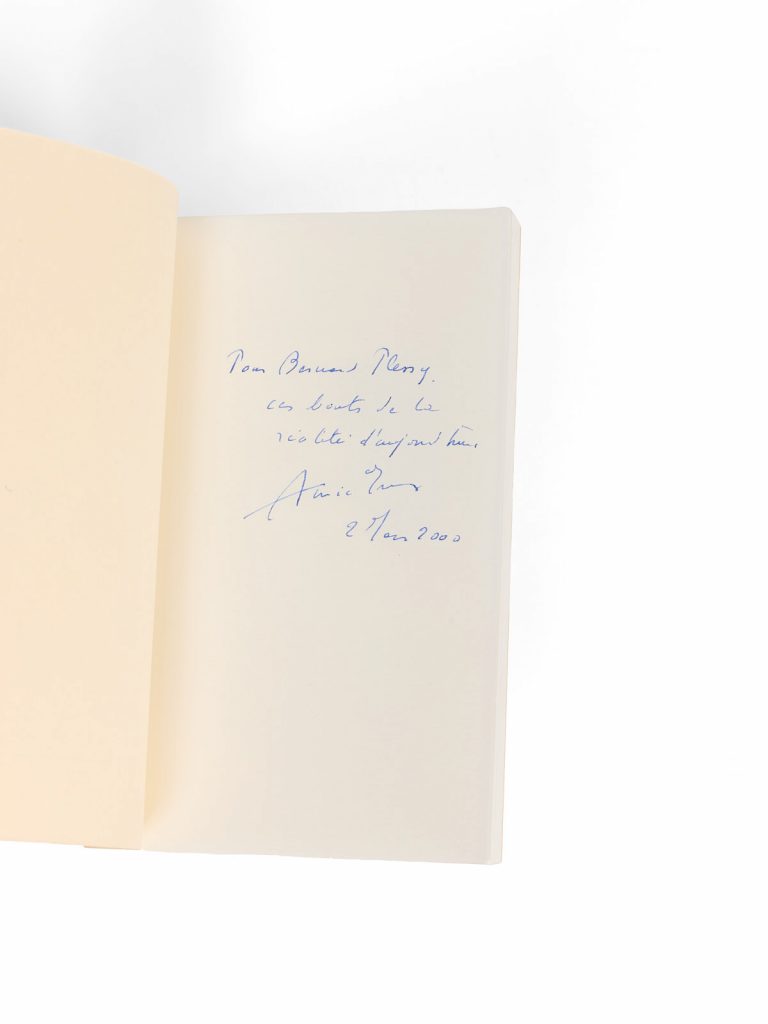 Pour Bernard Plessy,
ces bouts de la
réalité d'aujourd'hui
Annie Ernaux
2 Mars 2000